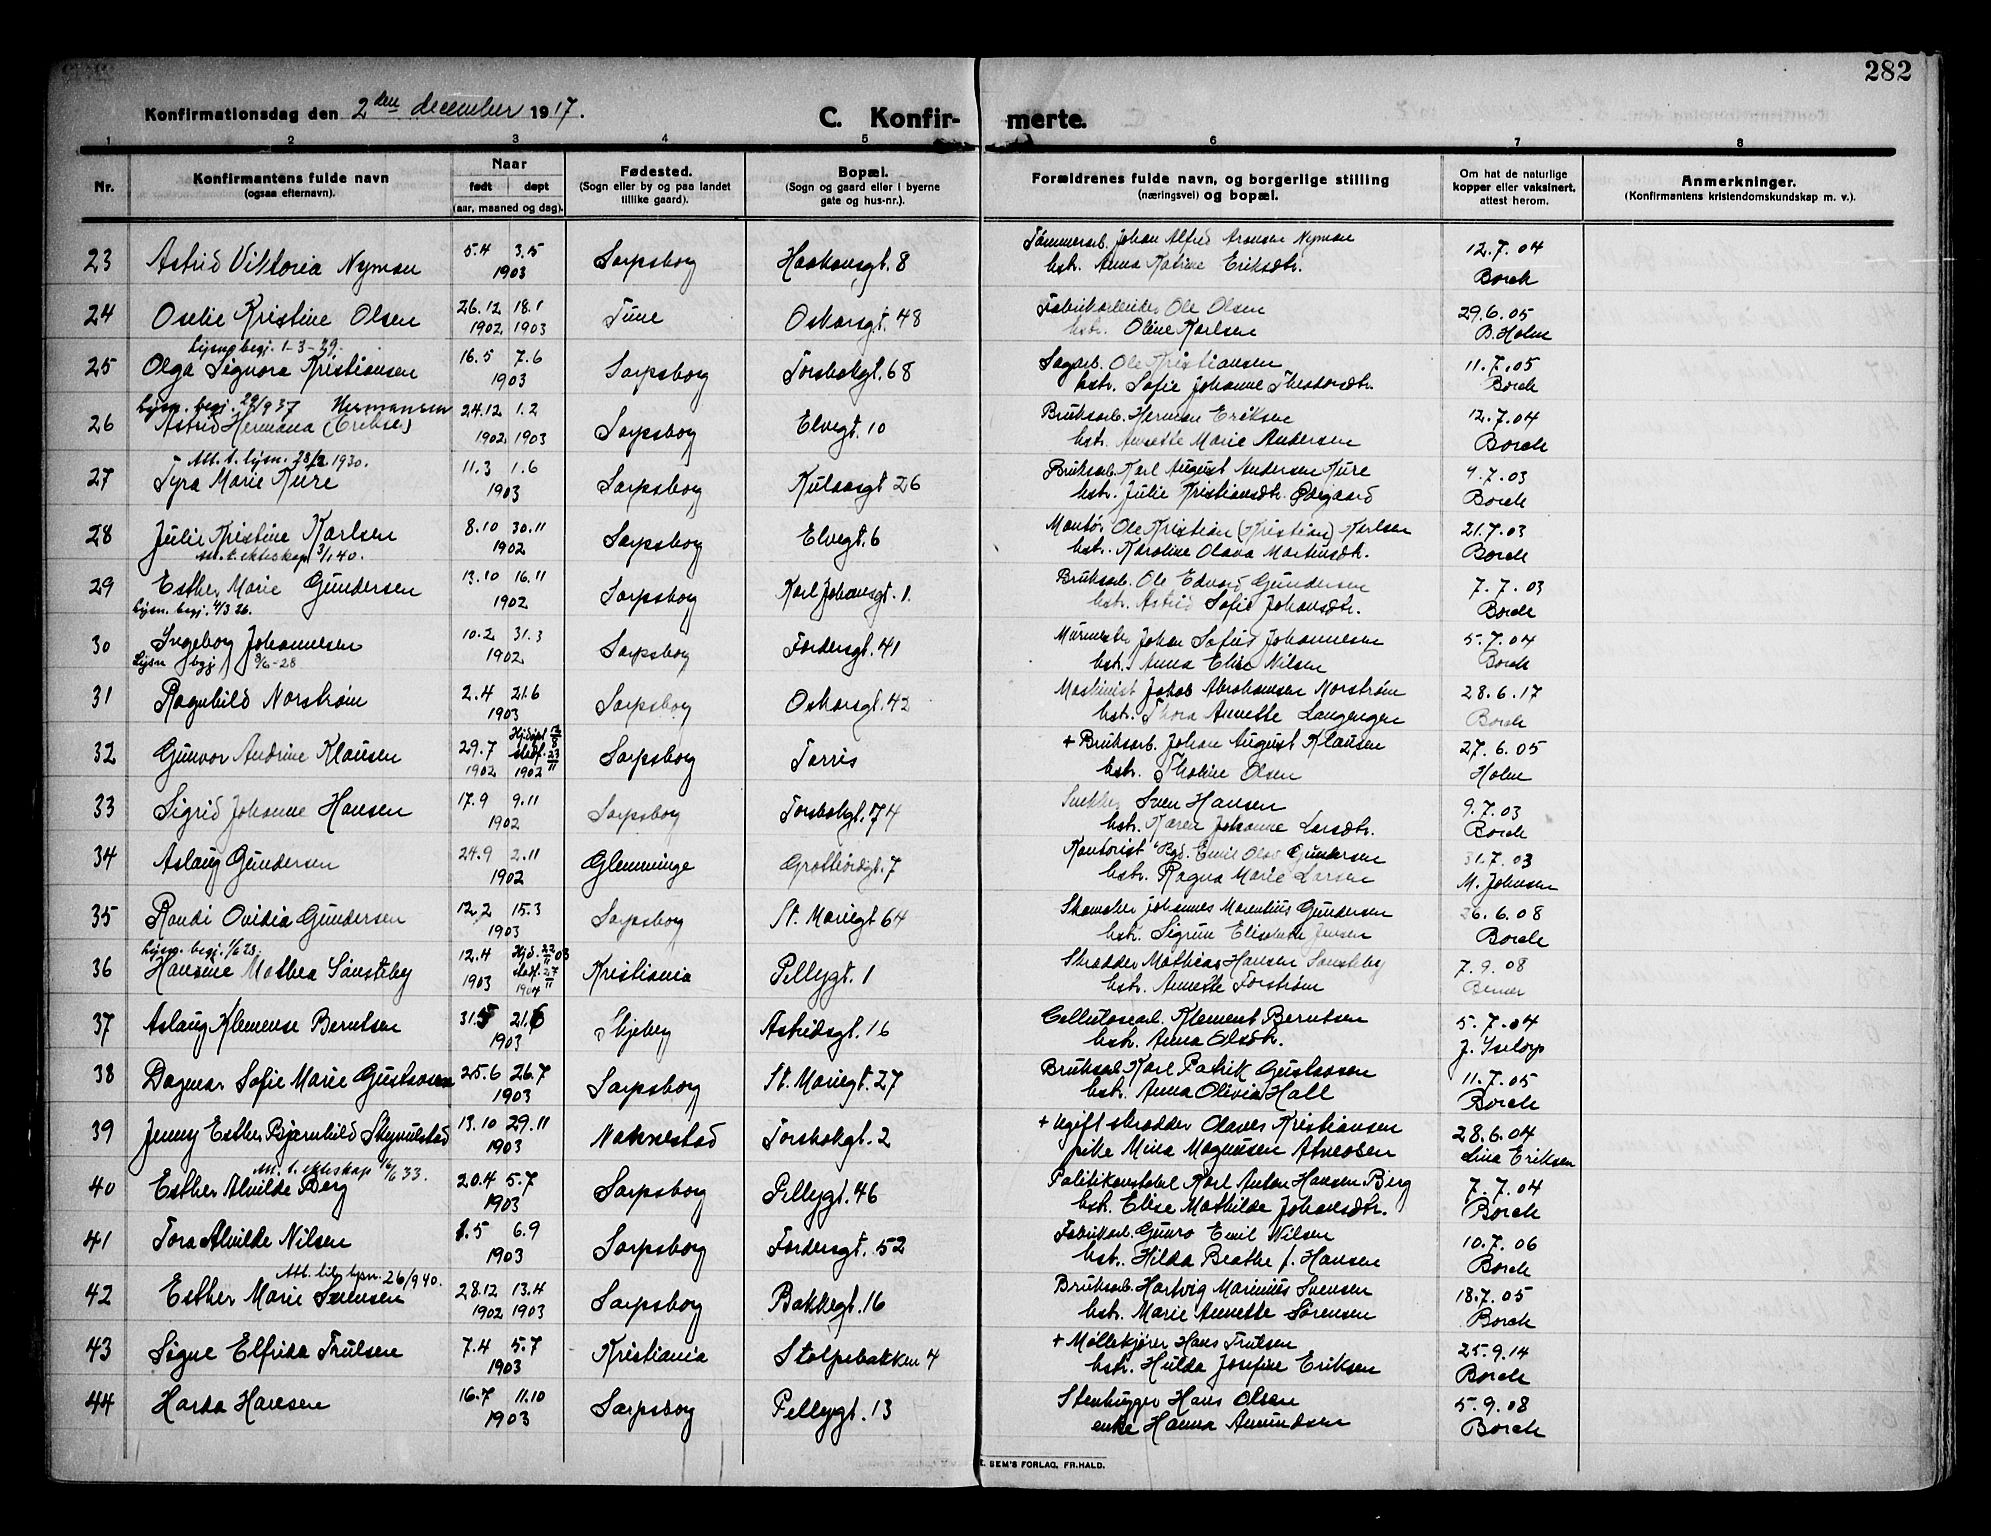 282
Konfirmationsdag den 2den december 1917.
C. Konfir- merte.
1 2 3 4 5 6 7 8
Nr.
Konfirmantens fulde navn
(ogsaa efternavn).
Naar
født døpt
(aar, maaned og dag).
Fødested.
(Sogn eller by og paa landet
tillike gaard).
Bopæl.
(Sogn og gaard eller i byerne
gate og hus-nr.).
Forældrenes fulde navn, og borgerlige stilling
(næringsvei) og bopæl.
Om hat de naturlige
kopper eller vaksinert,
attest herom.
Anmerkninger.
(Konfirmantens kristendomskundskap m. v.).
23 Astrid Viktoria Nyman 5.4 3.5 1903 Sarpsborg Haakonsgt. 8 Tømmerarb. Johan Alfred Aronsen Nyman
hstr. Anna Katrine Eriksdtr. 12.7.04 Borch
24 Oselie Kristine Olsen 26.12 1902 18.1 1903 Tune Oskarsgt. 48 Fabrikarbeider Ole Olsen
hstr. Oline Karlsen 29.6.05 B. Holm
Lysn. begj. 1-3-29.
25 Olga Signora Kristiansen 16.5 7.6 1903 Sarpsborg Torsbekgt. 68 Sagarb. Ole Kristiansen
hstr. Sofie Johanne Theodorsdtr. 11.7.05 Borch
Lysn. begj. 1937 Hermansen
26 Astrid Hermana (Eriksen) 24.12 1902 1.2 1903 Sarpsborg Elvegt. 10 Bruksarb. Herman Eriksen
hstr. Annette Marie Andersen 12.7.04 Borch
Att. t. lysn. 28/2 1930.
27 Tyra Marie Kure 11.3 1.6 1903 Sarpsborg Kulaasgt 26 Bruksarb. Karl August Andersen Kure
hstr. Julie Kristiansdtr. Ødegaard 7.03 Borch
28 Julie Kristine Karlsen 8.10 30.11 1902 Sarpsborg Elvegt. 6 Montør Ole Kristian (Kristian) Karlsen
hstr. Karoline Olava Martinsdtr. 21.7.03 Borch
Att. t. ekteskap 3/1 40.
29 Esther Marie Gundersen 13.10 16.11 1902 Sarpsborg Karl Johansgt. 1. Bruksarb. Ole Edvard Gundersen
hstr. Astrid Sofie Johansdtr. 7.7.03 Borch
Lysn. begj. 4/3 26.
30 Ingeborg Johannesen 10.2 31.3 1902 Sarpsborg Tordersgt. 41 Murmester Johan Sofus Johannesen
hstr. Anna Elise Nilsen 5.7.04 Borch
Lysn begj 9/6-28
31 Ragnhild Norstrøm 2.4 21.6 1903 Sarpsborg Oskarsgt. 42 Maskinist Jakob Abrahamsen Norstrøm
hstr. Thora Annette Langengen 28.6.17 Borch
32 Gunvor Andrine Klausen 29.7 1902 Hj.døpt stadf. 23/11 1902 Sarpsborg Torris + Bruksarb. Johan August Klausen
hstr. Tholine Olsen 27.6.05 Holm
33 Sigrid Johanne Hansen 17.9 9.11 1902 Sarpsborg Torsbekgt. 74 Snekker Sven Hansen
hstr. Karen Johanne Larsdtr. 9.7.03 Borch
34 Aslaug Gundersen 24.9 2.11 1902 Glemminge Grotterødgt. 7 Kontorist Emil Olav Gundersen
hstr. Ragna Marie Larsen 31.7.03 M. Johnsen
35 Randi Ovidia Gundersen 12.2 15.3 1903 Sarpsborg St. Mariegt 64 Skomaker Johannes Marentius Gundersen
hstr. Sigrun Elisabeth Jensen 26.6.08 Borch
Lysn. begj. 1/6 23.
36 Hansine Mathea Sønsteby 12.4 1903 Hjd. 03 stadf. 27/11 1904 Kristiania Pellygt. 1 Skrædder Mathias Hansen Sønsteby
hstr. Annette Forstrøm 7.9.08
37 Aslaug Klemense Berntsen 31.5 21.6 1903 Skjeberg Astridsgt. 16 Cellulosearb. Klement Berntsen
hstr. Anna Olsdtr. 5.7.04
38 Dagmar Sofie Marie Gustavsen 25.6 26.7 1903 Sarpsborg St. Mariegt. 27 Bruksarb. Karl Patrik Gustavsen
hstr. Anna Olivia Hall 11.7.05 Borch
39 Jenny Esther Bjarnhild Skyvulstad 13.10 29.11 1903 Nakkestad Torsbekgt. 2 + Ugift skrædder Olaves Kristiansen
pike Mina Magnusen 28.6.04 Lina Eriksen
Att. t. ekteskap 16/6 33.
40 Esther Alvilde Berg 20.4 5.7 1903 Sarpsborg Pellygt. 46 Politikonstabel Karl Anton Hansen Berg
hstr. Elise Mathilde Johansdtr. 7.7.04 Borch
41 Tora Alvilde Nilsen 1.5 6.9 1903 Sarpsborg Tordersgt. 52 Fabrikarb. Gunro Emil Nilsen
hstr. Hilda Beathe f. Hansen 10.7.06 Borch
Att. til lysn. 26/9 40.
42 Esther Marie Svensen 28.12 1902 13.4 1903 Sarpsborg Bakkegt. 16 Bruksarb. Hartvig Marinius Svensen
hstr. Marie Annette Sørensen 18.7.05 Borch
43 Signe Elfrida Trulsen 7.4 5.7 1903 Kristiania Stolpebakken 4 + Møllekjører Hans Trulsen
hstr. Hulda Josefine Eriksen 25.9.14 Borch
44 Harda Hansen 16.7 11.10 1903 Sarpsborg Pellygt. 13 Stenhugger Hans Olsen
enke Hanna Amundsen 5.9.08 Borch
E. SEM'S FORLAG, FR.HALD.